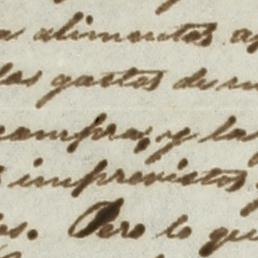 a alimentos a
los gastos de m
compra, y la
imprevistos
os. Pero lo qu